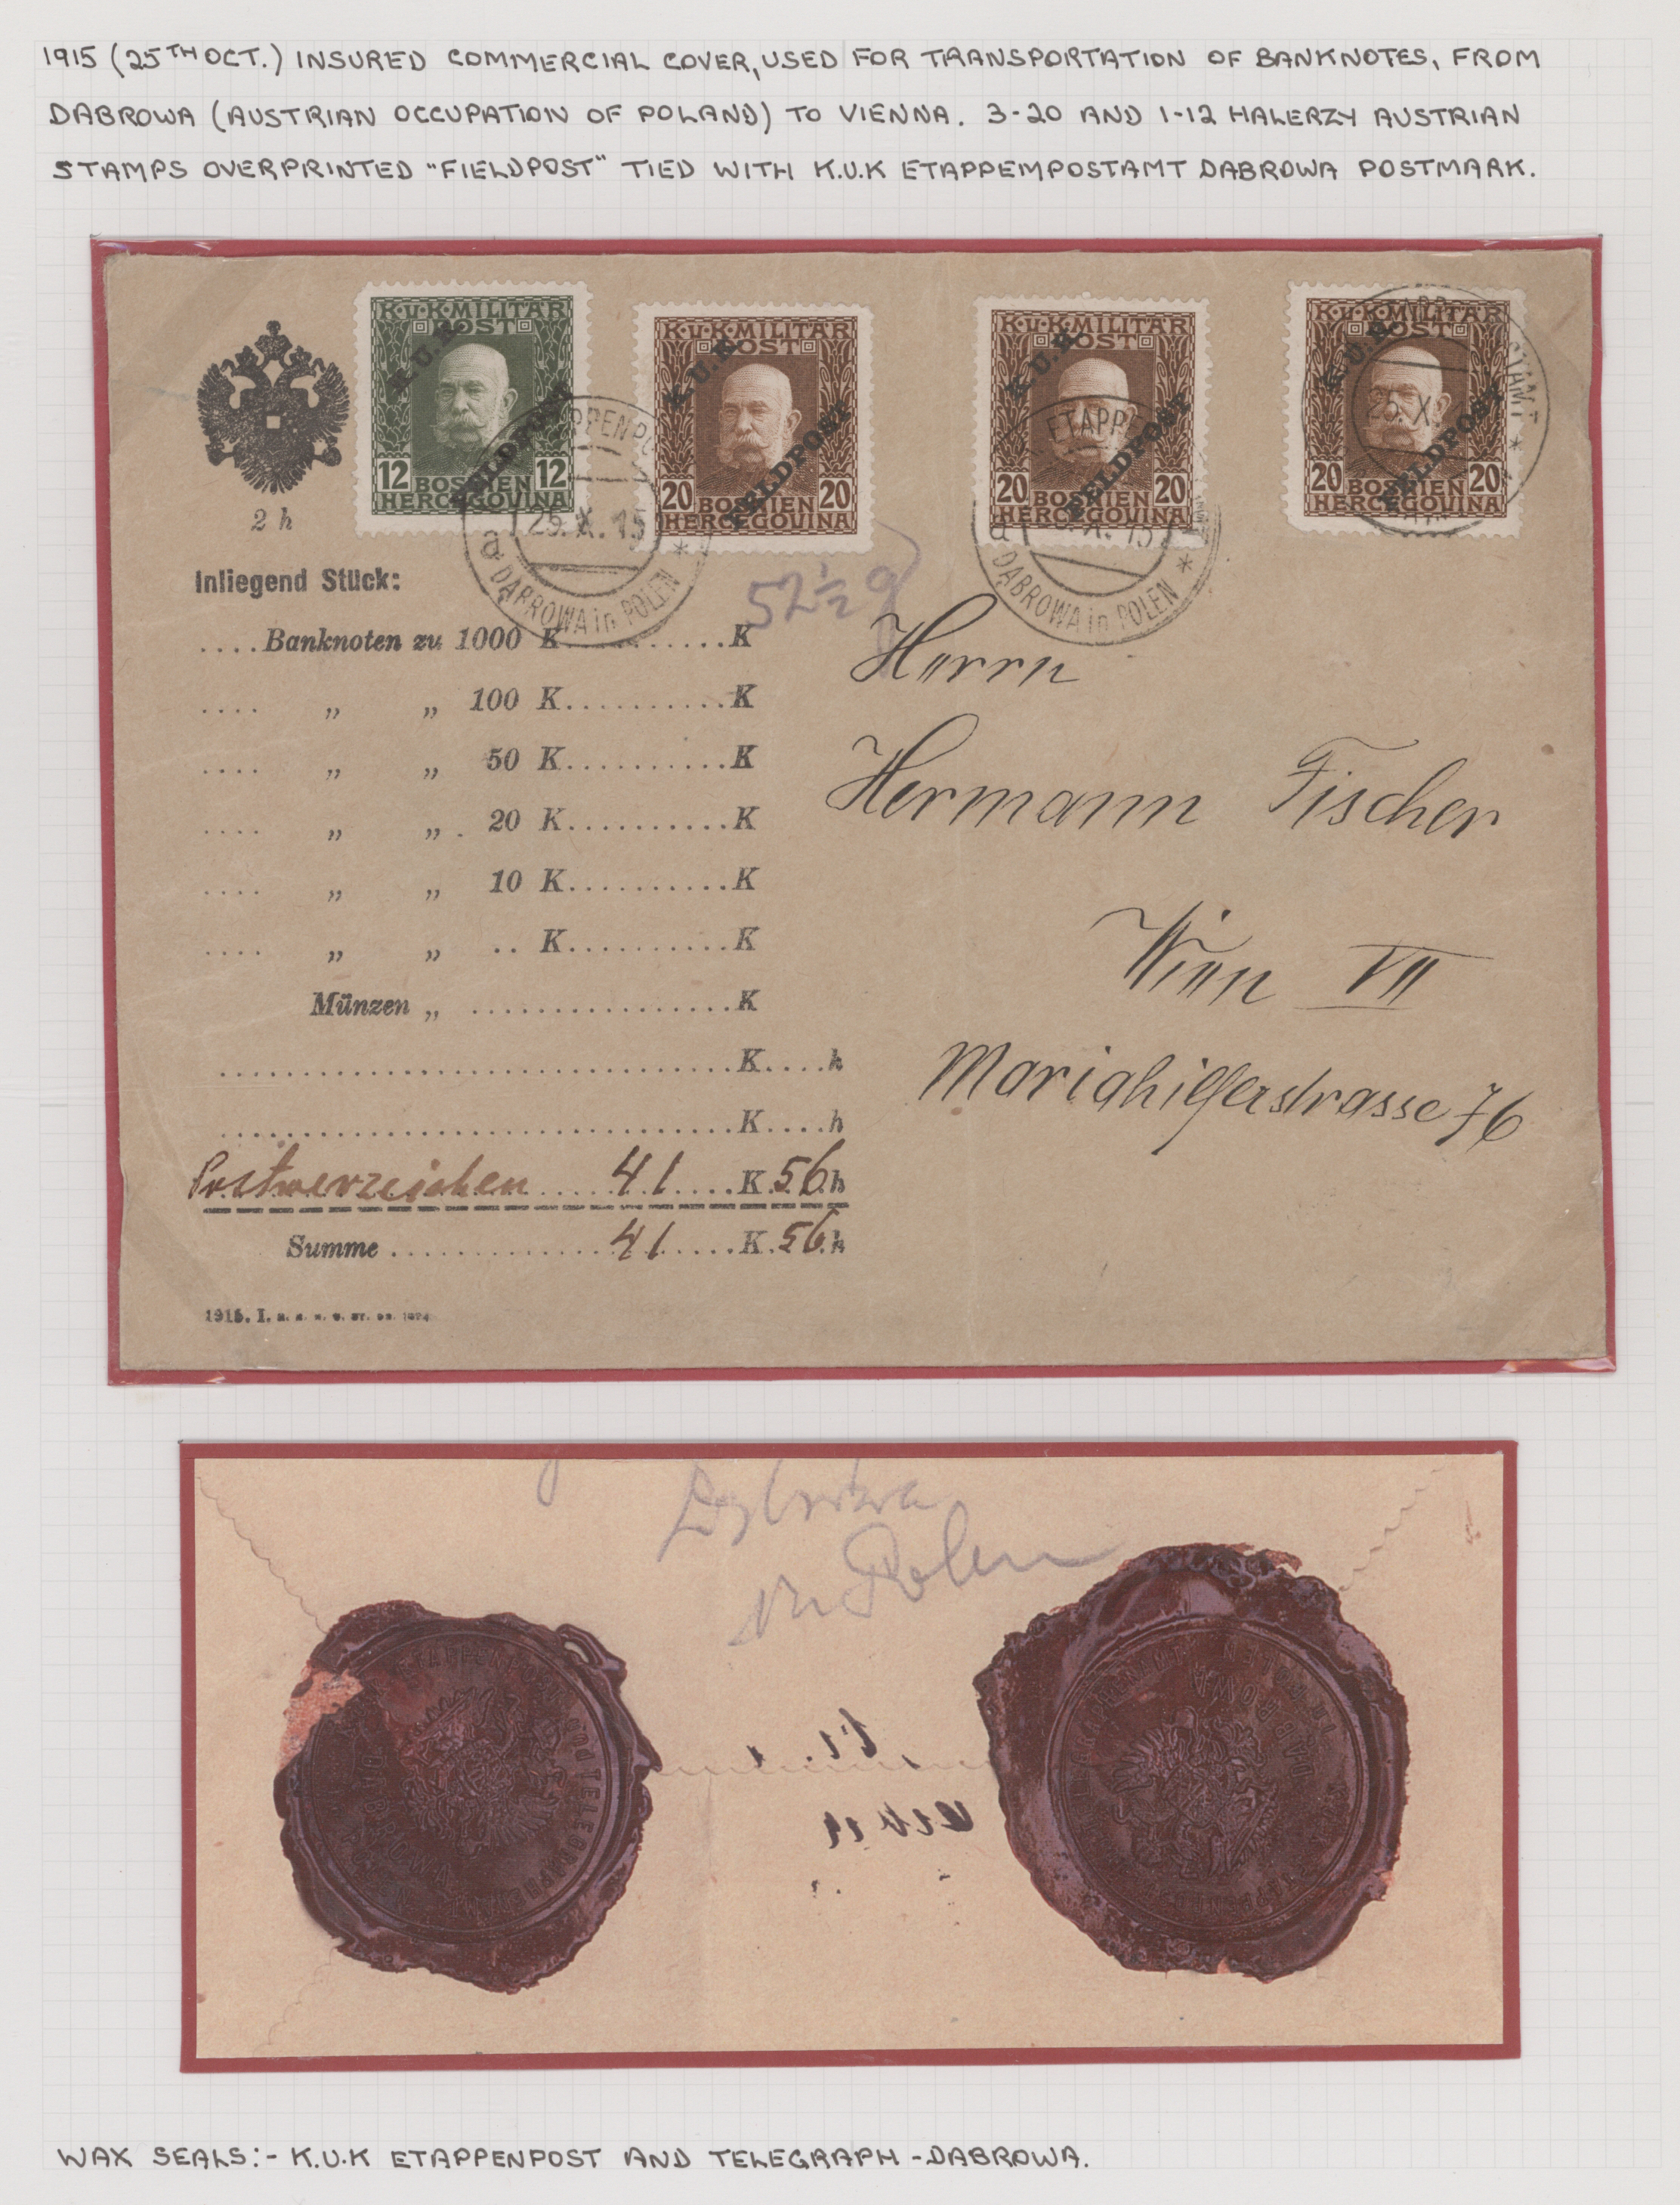 1915 (25TH OCT.) INSURED COMMERCIAL COVER, USED FOR TRANSPORTATION OF BANKNOTES, FROM
DABROWA (AUSTRIAN OCCUPATION OF POLAND) TO VIENNA. 3-20 AND 1-12 HALERZY AUSTRIAN
STAMPS OVERPRINTED "FIELDPOST" TIED WITH K.U.K ETAPPEMPOSTAMT DABROWA POSTMARK.
K·u·K·MILITÄR
POST
K.U.K.
FELDPOST
12 12
BOSNIEN
HERCEGOVINA
K·u·K·MILITÄR
POST
K.U.K.
FELDPOST
20 20
BOSNIEN
HERCEGOVINA
K·u·K·MILITÄR
POST
K.U.K.
FELDPOST
20 20
BOSNIEN
HERCEGOVINA
K·u·K·MILITÄR
POST
K.U.K.
FELDPOST
20 20
BOSNIEN
HERCEGOVINA
a 25. X. 15 *
DĄBROWA in POLEN
ETAPPE
a X. 15 *
DĄBROWA in POLEN
25. X.
2 h
52½ g
Inliegend Stück:
....Banknoten zu 1000 K...........K
.... „ „ 100 K...........K
.... „ „ 50 K...........K
.... „ „ 20 K...........K
.... „ „ 10 K...........K
.... „ „ .. K...........K
Münzen „ ................K
...............................K....h
...............................K....h
Postwerzeichen ..... 41 ....K. 56 h
Summe .............. 41 .....K. 56 h
1915. I.
Herrn
Hermann Fischer
Wien VII
Mariahilferstrasse 76
Dąbrowa
in Polen
ETAPPENPOST UND TELEGRAPHENAMT
DABROWA
ETAPPENPOST TELEGRAPHENAMT
DABROWA
IN POLEN
WAX SEALS:- K.U.K ETAPPENPOST AND TELEGRAPH -DABROWA.